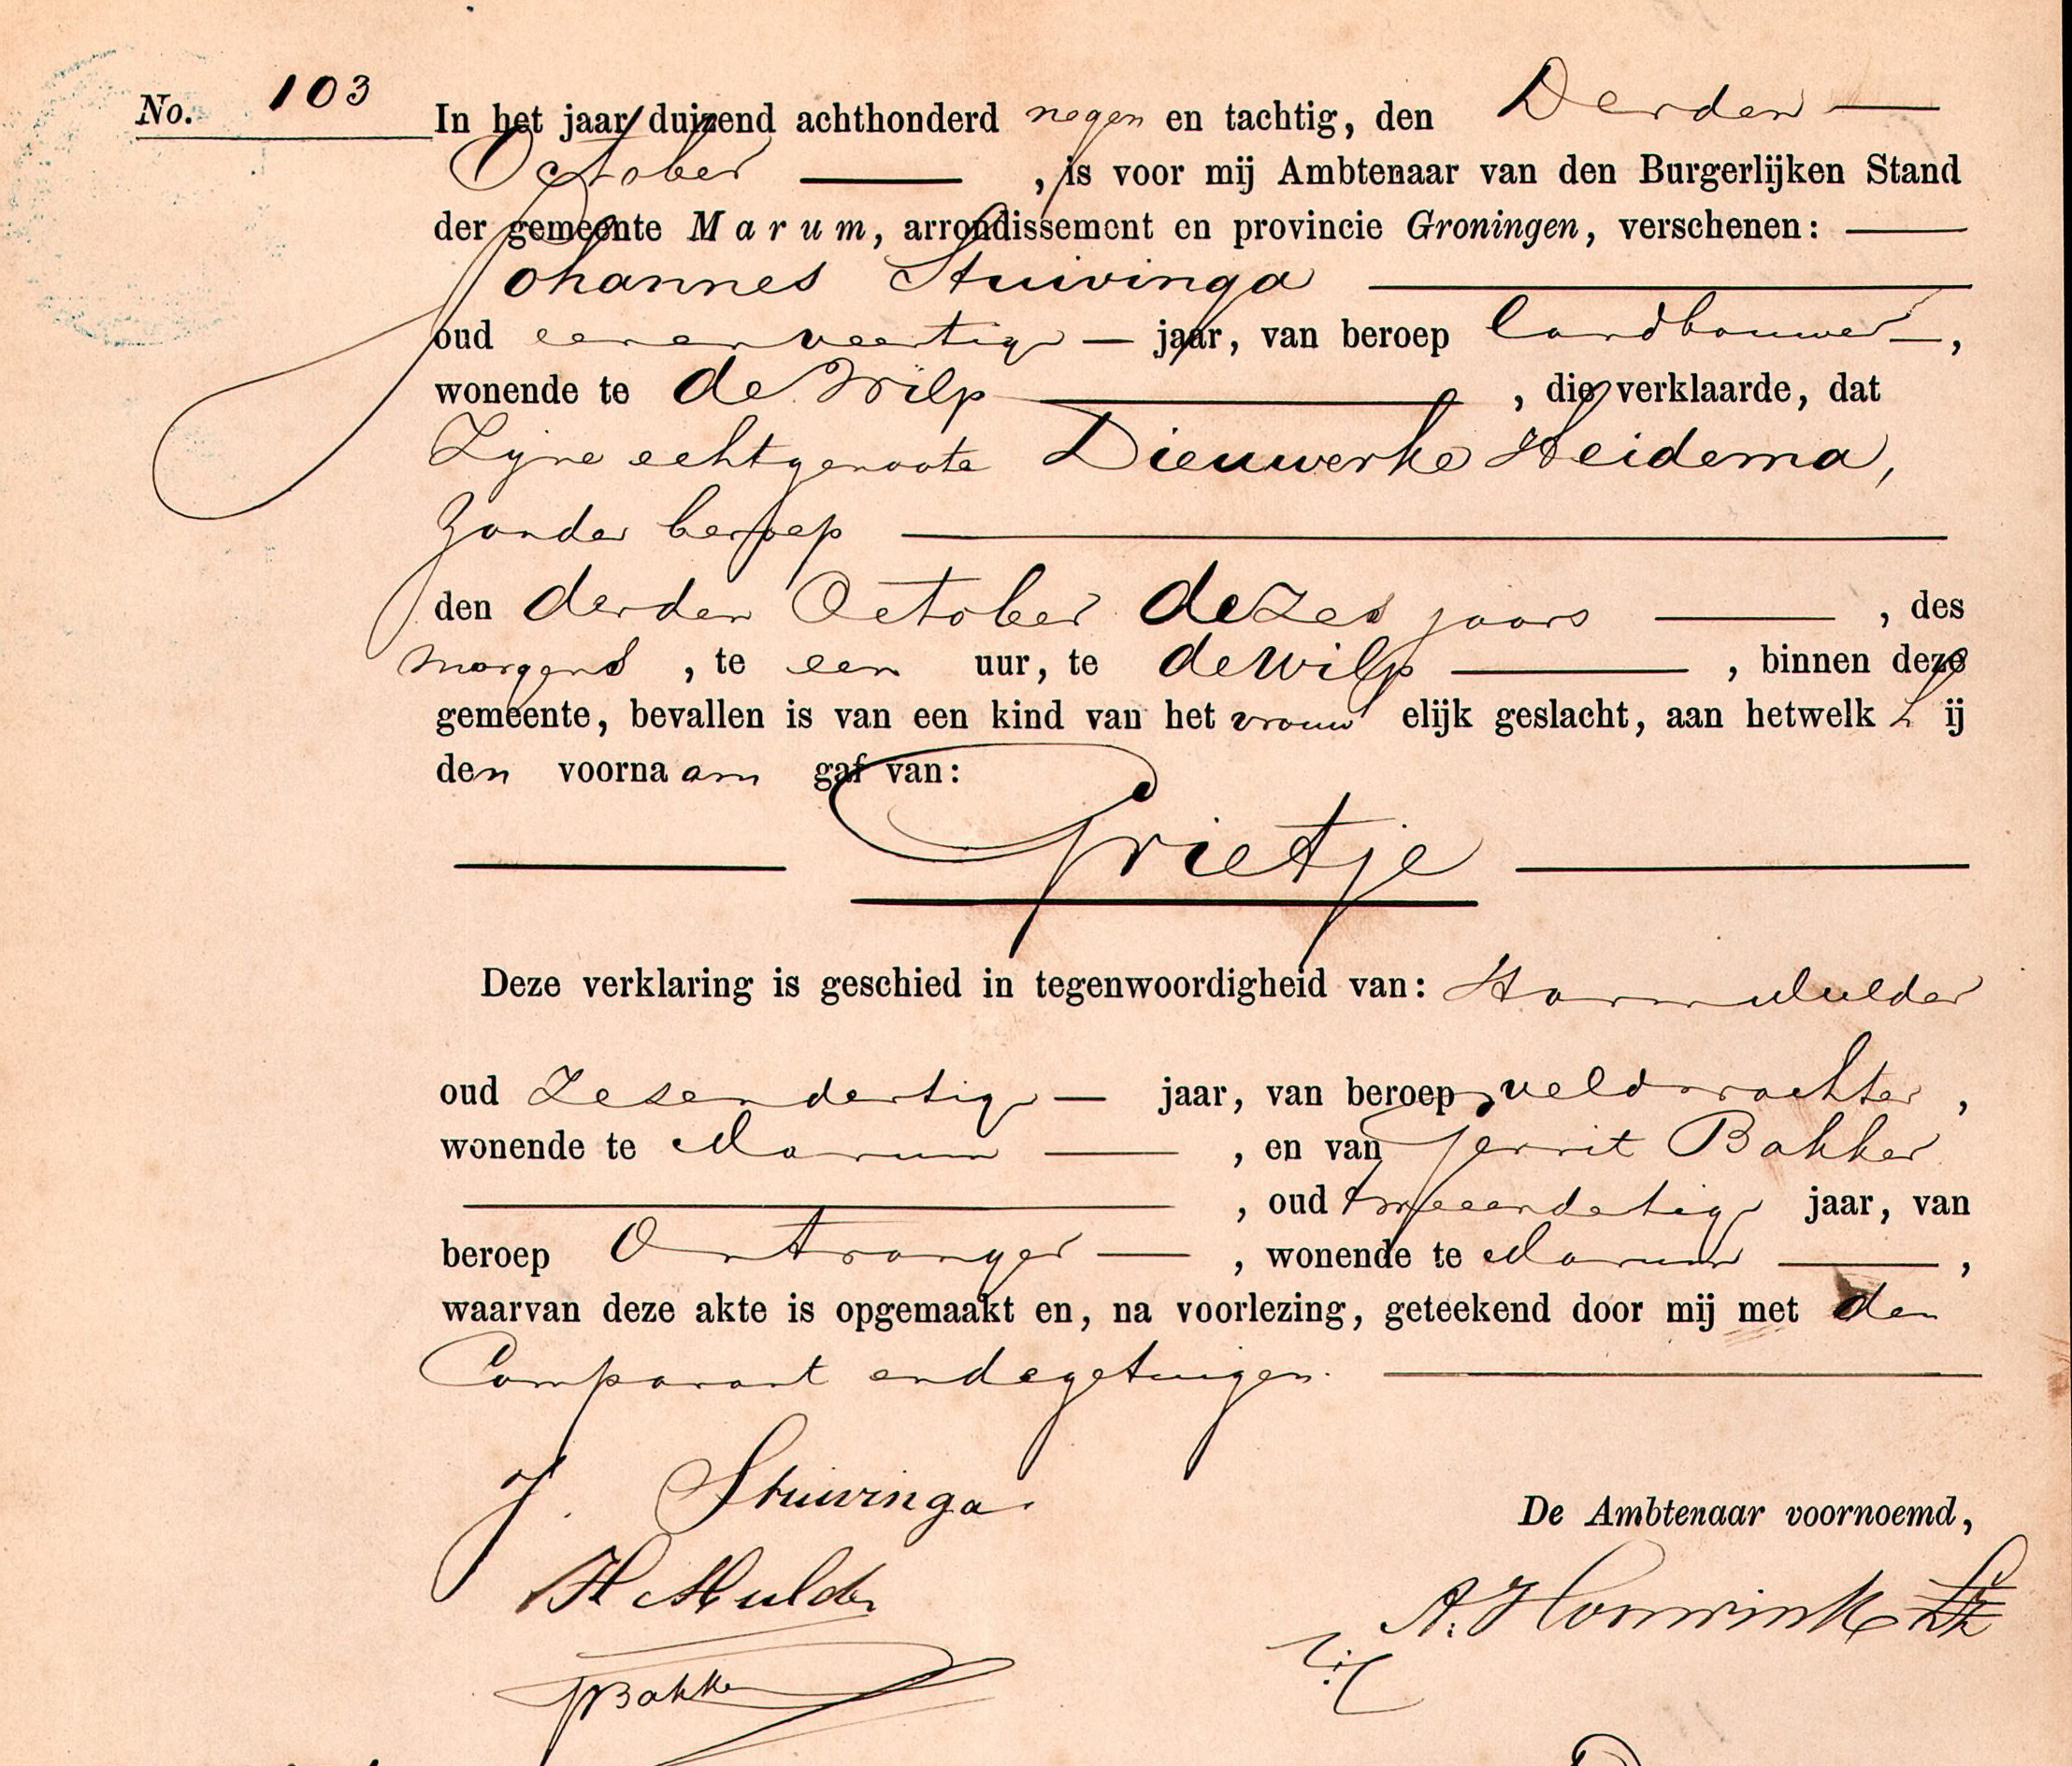 No. 103
In het jaar duizend achthonderd negen en tachtig, den Derden
October , is voor mij Ambtenaar van den Burgerlijken Stand
der gemeente Marum, arrondissement en provincie Groningen, verschenen:
Johannes Stuivinga
oud eenenveertig jaar, van beroep landbouwer,
wonende te de Wilp , die verklaarde, dat
Zijne echtgenoote Dieuwerke Heidema,
zonder beroep
den derden October dezes jaars , des
morgens , te een uur, te de Wilp , binnen deze
gemeente, bevallen is van een kind van het vrouwelijk geslacht, aan hetwelk Hij
den voornaam gaf van:
Grietje
Deze verklaring is geschied in tegenwoordigheid van: Harm Mulder
oud Zesendertig jaar, van beroep veldwachter ,
wonende te Marum , en van Gerrit Bakker
, oud tweeendertig jaar, van
beroep Ontvanger , wonende te Marum ,
waarvan deze akte is opgemaakt en, na voorlezing, geteekend door mij met den
Comparant en de getuigen.
J. Stuivinga.
De Ambtenaar voornoemd,
H Mulder
A. Honwink
GBakker